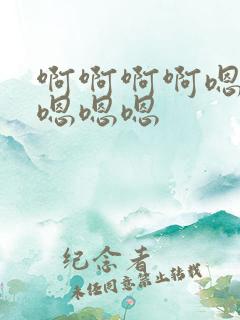 啊啊啊啊嗯
嗯嗯嗯
纪念者
未经同意禁止转载